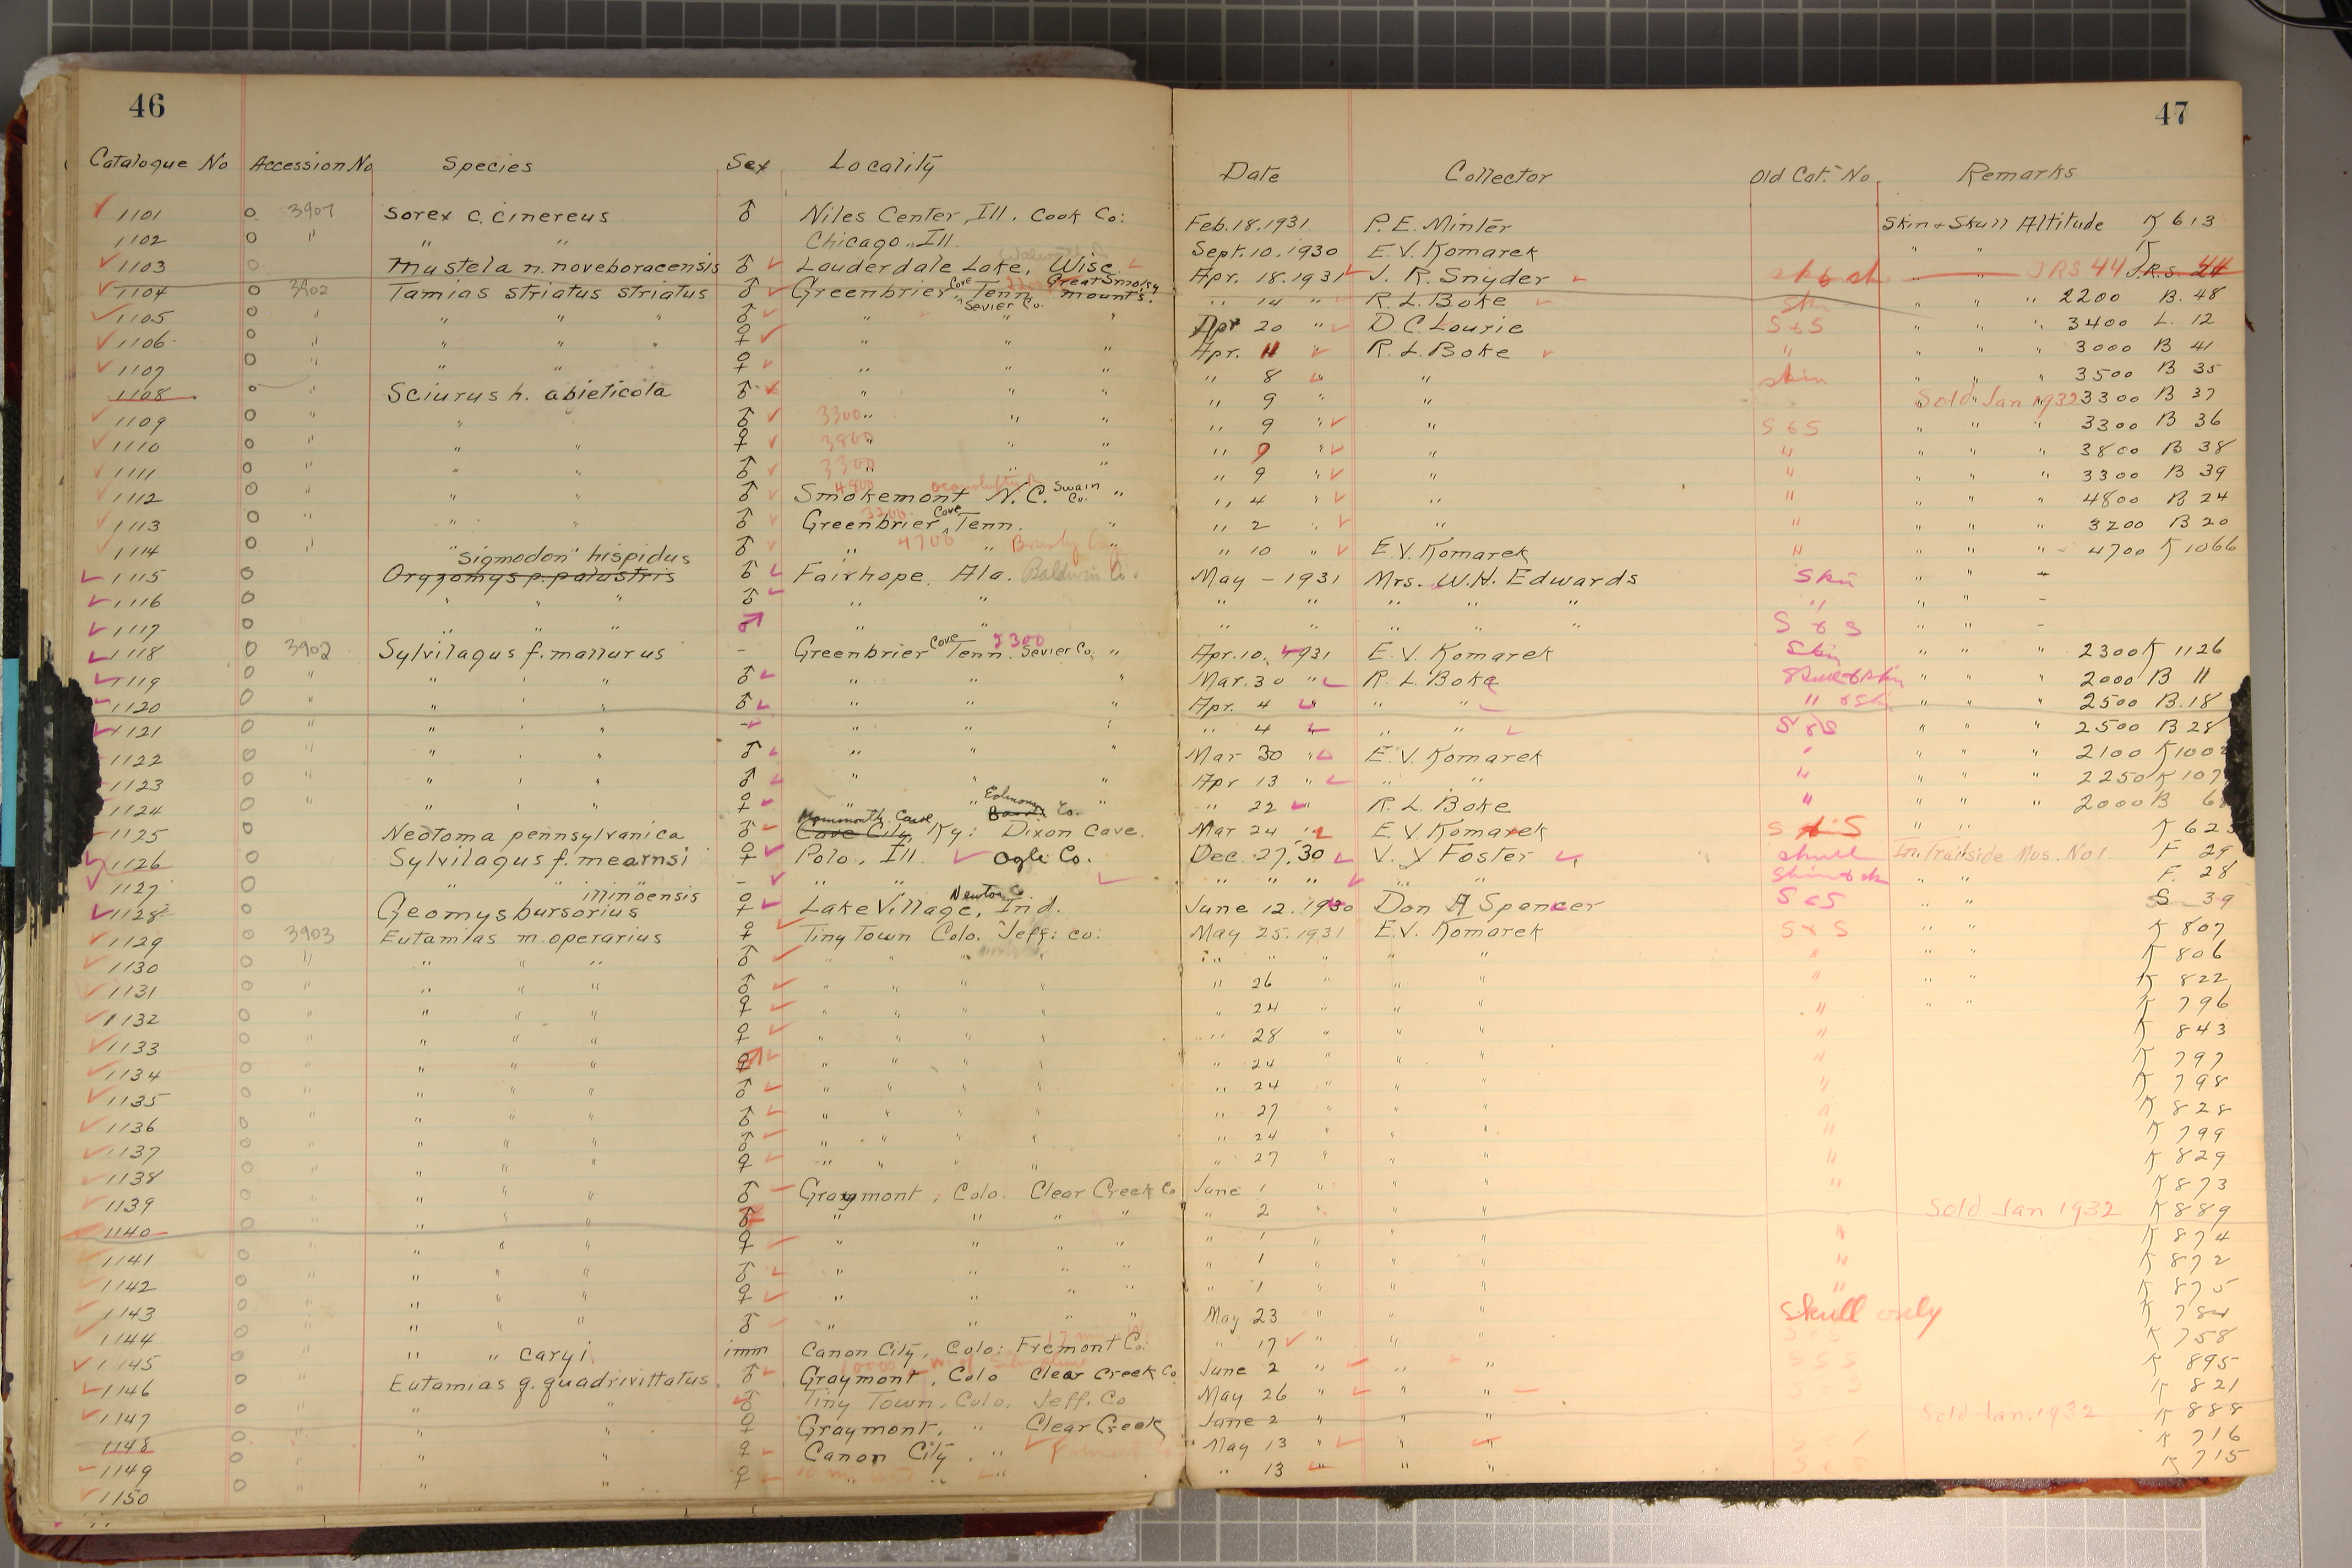 46
47
Catalogue No Accession No Species Sex Locality Date Collector Old Cat. No. Remarks
1101 o 3901 Sorex c. cinereus ♂ Niles Center, Ill. Cook Co: Feb. 18. 1931 P. E. Minter Skin + Skull Altitude K 613
1102 o " " " Chicago, Ill. Sept. 10. 1930 E. V. Komarek " " K
1103 o Mustela n. noveboracensis ♂ Lauderdale Lake, Wisc. Apr. 18. 1931 J. R. Snyder " " JRS 44 J.R.S. 44
1104 o 3902 Tamias striatus striatus ♂ Greenbrier Cove Tenn. Sevier Co. Great Smoky mount's. " 14 " R. L. Boke " " " 2200 B. 48
1105 o " " " " ♂ " " " Apr 20 " D. C. Lourie S & S " " " 3400 L. 12
1106 o " " " " ♀ " " " Apr. 11 " R. L. Boke " " " " 3000 B 41
1107 o " " " ♀ " " " " 8 " " skin " " " 3500 B 35
1108 o " Sciurus h. abieticola ♂ " " " " 9 " " Sold Jan 1932 3300 B 37
1109 o " " ♂ 3300 " " " " 9 " " S & S " " " 3300 B 36
1110 o " " " ♀ 3800 " " " " 9 " " " " " " 3800 B 38
1111 o " " " ♂ 3300 " " " " 9 " " " " " " 3300 B 39
1112 o " " " ♂ 4800 Smokemont N. C. Swain Co. " " 4 " " " " " " 4800 B 24
1113 o " " " ♂ 3200 Greenbrier Cove Tenn. " " 2 " " " " " " 3200 B 20
1114 o " ♂ " 4700 " " " 10 " E. V. Komarek " " " " 4700 K 1066
1115 o "Sigmodon" hispidus Oryzomys p. palustris ♂ Fairhope, Ala. Baldwin Co. May - 1931 Mrs. W. H. Edwards Skin " " -
1116 o " " " ♂ " " " " " " " " " " -
1117 o " " " ♂ " " " " " " " S & S " " -
1118 o 3902 Sylvilagus f. mallurus - Greenbrier Cove Tenn. 2300 Sevier Co. " Apr. 10. 1931 E. V. Komarek Skin " " " 2300 K 1126
1119 o " " " " ♂ " " " Mar. 30 " R. L. Boke " " " 2000 B 11
1120 o " " " " ♂ " " " Apr. 4 " " " " " " 2500 B. 18
1121 o " " " " - " " " " 4 " " " S & S " " " 2500 B 28
1122 o " " " " ♂ " " " Mar 30 " E. V. Komarek " " " " 2100
1123 o " " " " ♂ " " " Apr 13 " " " " " " " 2250
1124 o " " " " ♀ " " " " 22 " R. L. Boke " " " " 2000
1125 o Neotoma pennsylvanica ♂ Mammouth Cave Cave City, Ky: Edmonson Co. Dixon Cave. Mar 24 " E. V. Komarek S & S " "
1126 o Sylvilagus f. mearnsi ♀ Polo, Ill. Ogle Co. Dec. 27, '30 V. Y Foster skull In Trailside Mus. No 1. F 29
1127 o " " - " " " " " " " " " " F. 28
1128 o Geomys bursorius illinoensis ♀ Lake Village, Ind. Newton Co. June 12. 1930 Don A Spencer S & S " " S 39
1129 o 3903 Eutamias m. operarius ♀ Tiny Town Colo. Jeff: Co: May 25. 1931 E. V. Komarek S & S " " K 807
1130 o " " " " ♂ " " " " " " " " " " " " K 806
1131 o " " " " ♂ " " " " " 26 " " " " " K 822
1132 o " " " " ♀ " " " " " 24 " " " " " " K 796
1133 o " " " " ♀ " " " " " 28 " " " " K 843
1134 o " " " " ♂ " " " " " 24 " " " " K 797
1135 o " " " " ♂ " " " " " 24 " " " " K 798
1136 o " " " " ♂ " " " " " 27 " " " " K 828
1137 o " " " " ♂ " " " " " 24 " " " " K 799
1138 o " " " " ♀ " " " " " 27 " " " " K 829
1139 o " " " " ♂ Graymont, Colo. Clear Creek Co June 1 " " " " K 873
1140 o " " " " ♂ " " " " " 2 " " " Sold Jan 1932 K 889
1141 o " " " " ♀ " " " " " 1 " " " " K 874
1142 o " " " " ♂ " " " " " 1 " " " " K 872
1143 o " " " " ♀ " " " " " 1 " " " " K 875
1144 o " " " " ♂ " " " " May 23 " " " Skull only K 784
1145 o " " " caryi imm Canon City, Colo: Fremont Co: " 17 " " K 758
1146 o " Eutamias q. quadrivittatus ♂ Graymont, Colo Clear Creek Co June 2 " " " S & S K 895
1147 o " " " ♂ Tiny Town, Colo. Jeff. Co May 26 " " " K 821
1148 o " " " ♀ Graymont, " Clear Creek June 2 " " " Sold Jan. 1932 K 888
1149 o " " " ♀ Canon City, " May 13 " " " K 716
1150 o " " " ♀ " " " 13 " " " K 715